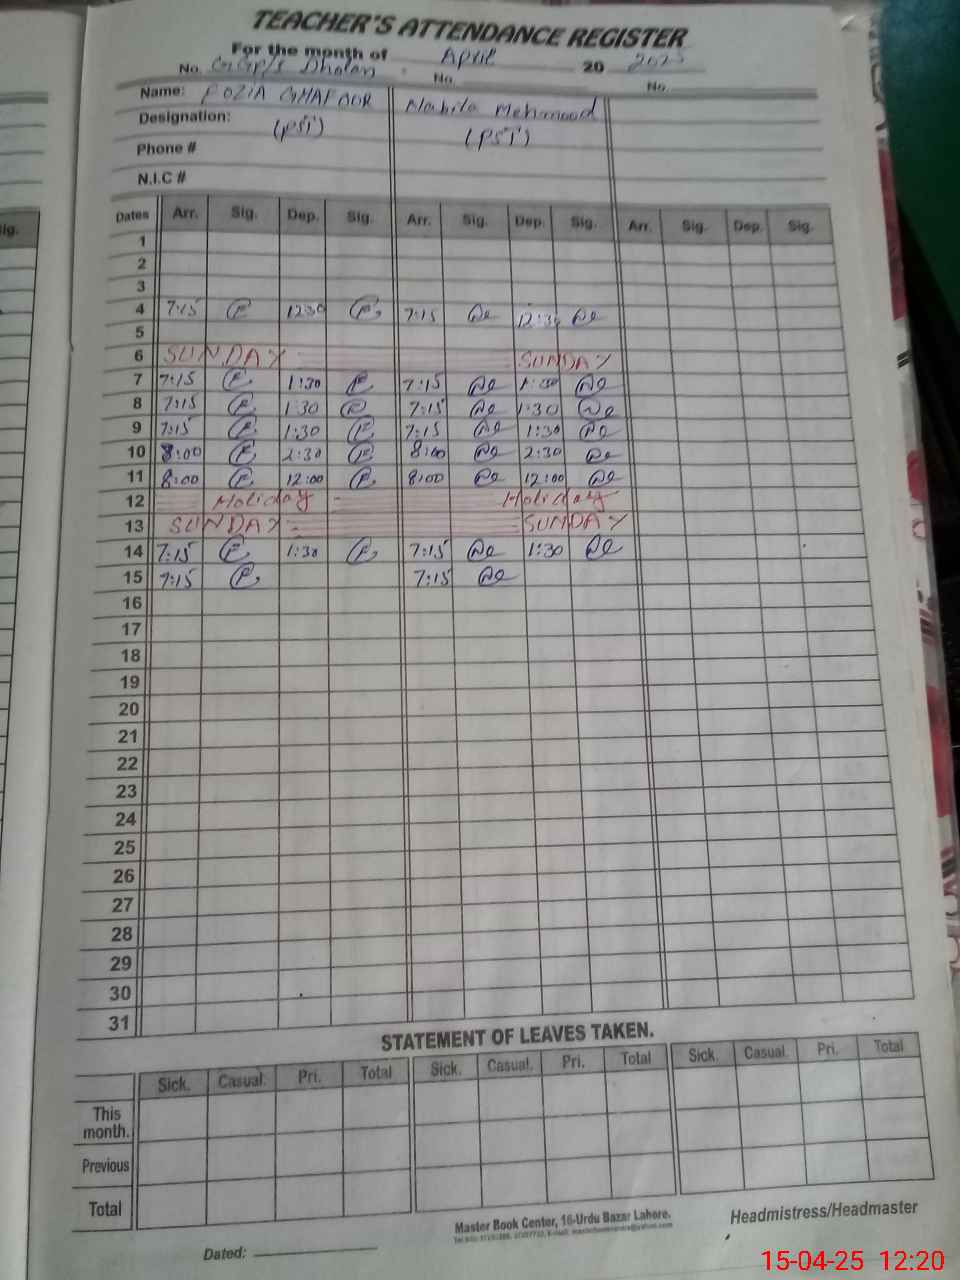 TEACHER'S ATTENDANCE REGISTER
For the month of April 2025
No. GGP/S Dholan No. No.
Name: FOZIA GHAFOOR Nabila Mehmood
Designation: (PST) (PST)
Phone #
N.I.C #
ig.
Dates Arr. Sig. Dep. Sig. Arr. Sig. Dep. Sig. Arr. Sig. Dep. Sig.
1
2
3
4 7:15 12:30 7:15 12:30
5
6 SUNDAY SUNDAY
7 7:15 1:30 7:15 1:30
8 7:15 1:30 7:15 1:30
9 7:15 1:30 7:15 1:30
10 8:00 2:30 8:00 2:30
11 8:00 12:00 8:00 12:00
12 Holiday - Holiday
13 SUNDAY - SUNDAY
14 7:15 1:30 7:15 1:30
15 7:15 7:15
16
17
18
19
20
21
22
23
24
25
26
27
28
29
30
31
STATEMENT OF LEAVES TAKEN.
Sick. Casual. Pri. Total Sick. Casual. Pri. Total Sick. Casual. Pri. Total
This
month.
Previous
Total
Master Book Center, 16-Urdu Bazar Lahore.
Headmistress/Headmaster
Dated:
15-04-25 12:20